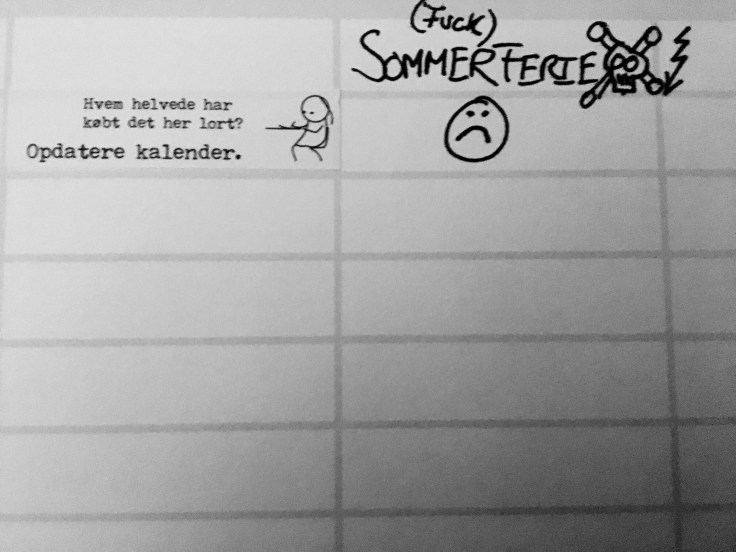 (FUCK)
SOMMERFERIE
Hvem helvede har
købt det her lort?
Opdatere kalender.